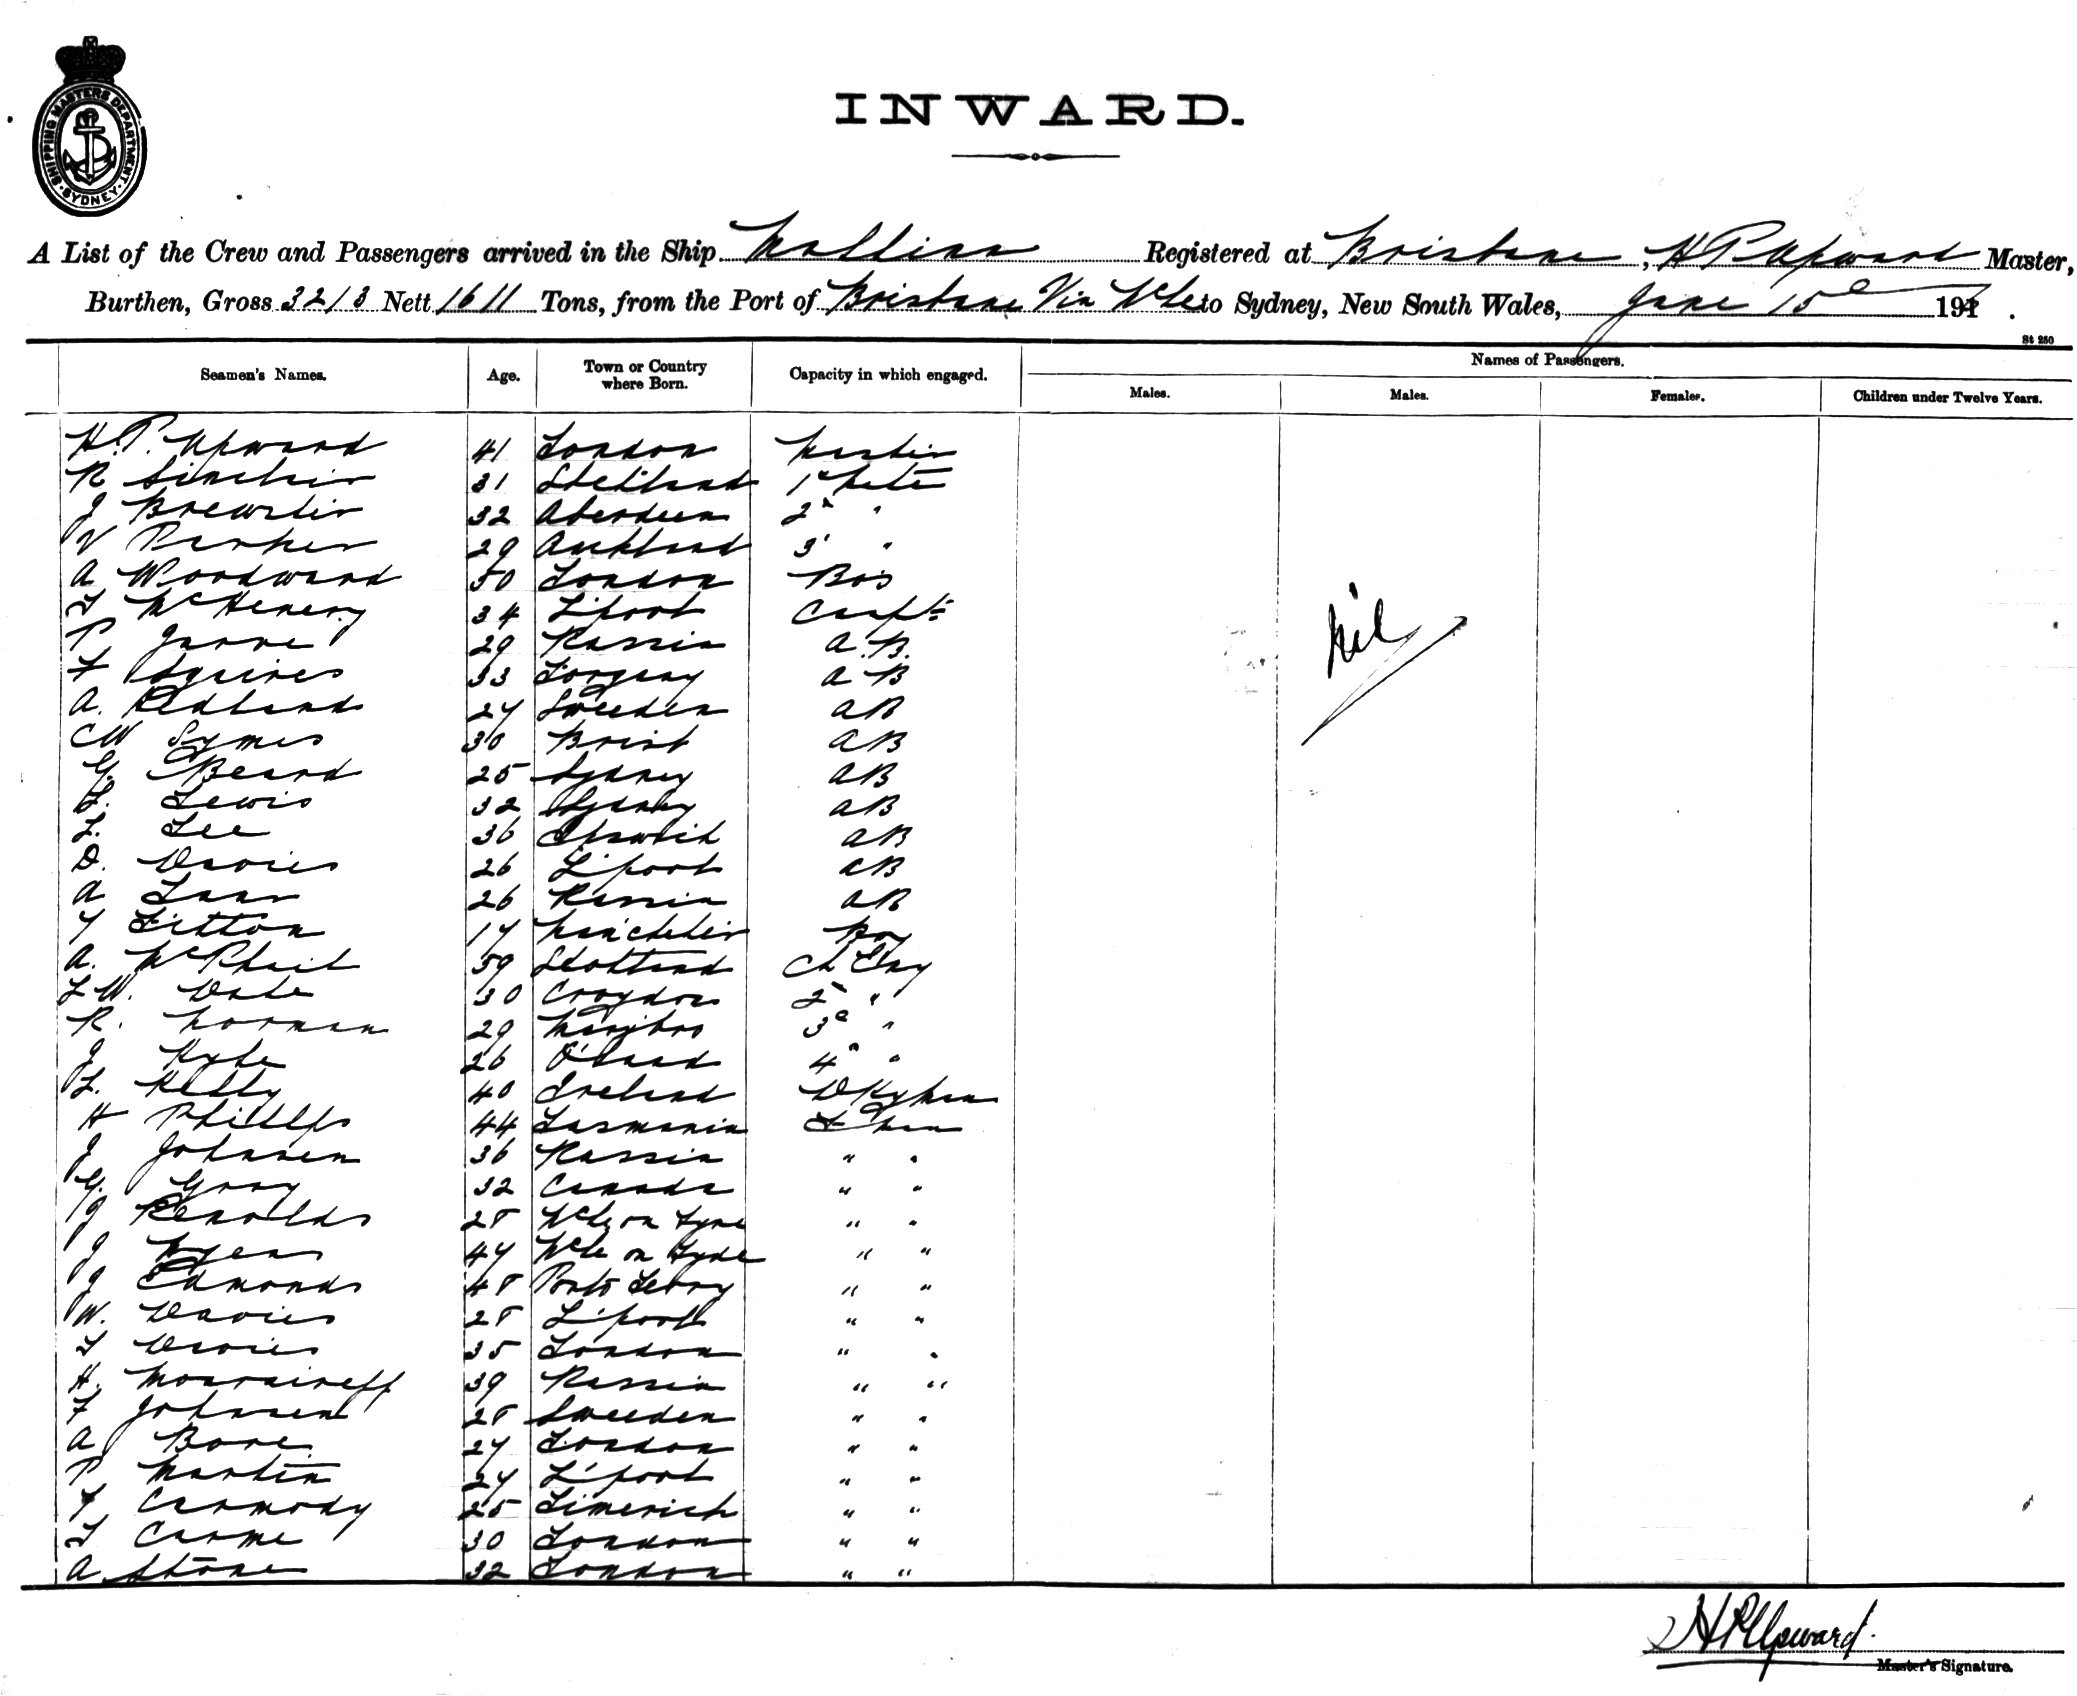 SHIPPING MASTERS DEPARTMENT
SYDNEY
INWARD.
A List of the Crew and Passengers arrived in the Ship Mallina Registered at Brisbane, H P Upward Master,
Burthen, Gross 3213 Nett 1611 Tons, from the Port of Brisbane Via N'cle to Sydney, New South Wales, June 15 191
St 250
Seamen's Names. Age. Town or Country where Born. Capacity in which engaged. Names of Passengers.
Males. Males. Females. Children under Twelve Years.
H. P. Upward 41 London Master
R Sinclair 31 Shetland 1st Mate
J Brewster 32 Aberdeen 2nd "
V Parker 29 Auckland 3 "
A Woodward 50 London Bos
T McHenery 34 L'pool Carptr
P 29 Russia A.B.
F Squires 33 A B
A. Redland 27 Sweeden AB
CW Symes 30 Brist AB
G. Beard 25 Sydney AB
L. Lewis 32 Sydney AB
L. Lee 36 Ipswich AB
D. Davies 26 L'pool AB
A Laar 26 Russia AB
T Litton 17 Man'chester Boy
A. McPhail 59 Scotland Ch Eng
L W. Date 30 Croydon 2 "
R. Norman 29 Marybro 3rd "
J Kyle 26 Q'land 4th "
L. Kelly 40 Ireland DKyman
H Phillips 44 Tasmania F man
J Johnsen 36 Russia " "
G. Gray 32 Canada " "
J Renolds 28 N'cle on Tyne " "
J Myers 47 N'cle on Tyne " "
J Edmonds 48 " "
W. Davies 28 L'pool " "
T Davies 35 London " "
H. 39 Russia " "
F Johnsen 28 Sweeden " "
A Bone 27 London " "
P Martin 27 L'pool " "
T Carmody 25 Limerick " "
T Carme 30 London " "
A Stone 32 London " "
Nil
H P Upward.
Master's Signature.